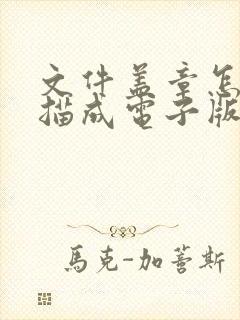 文件盖章怎
描成電子版
馬克-加萫斯